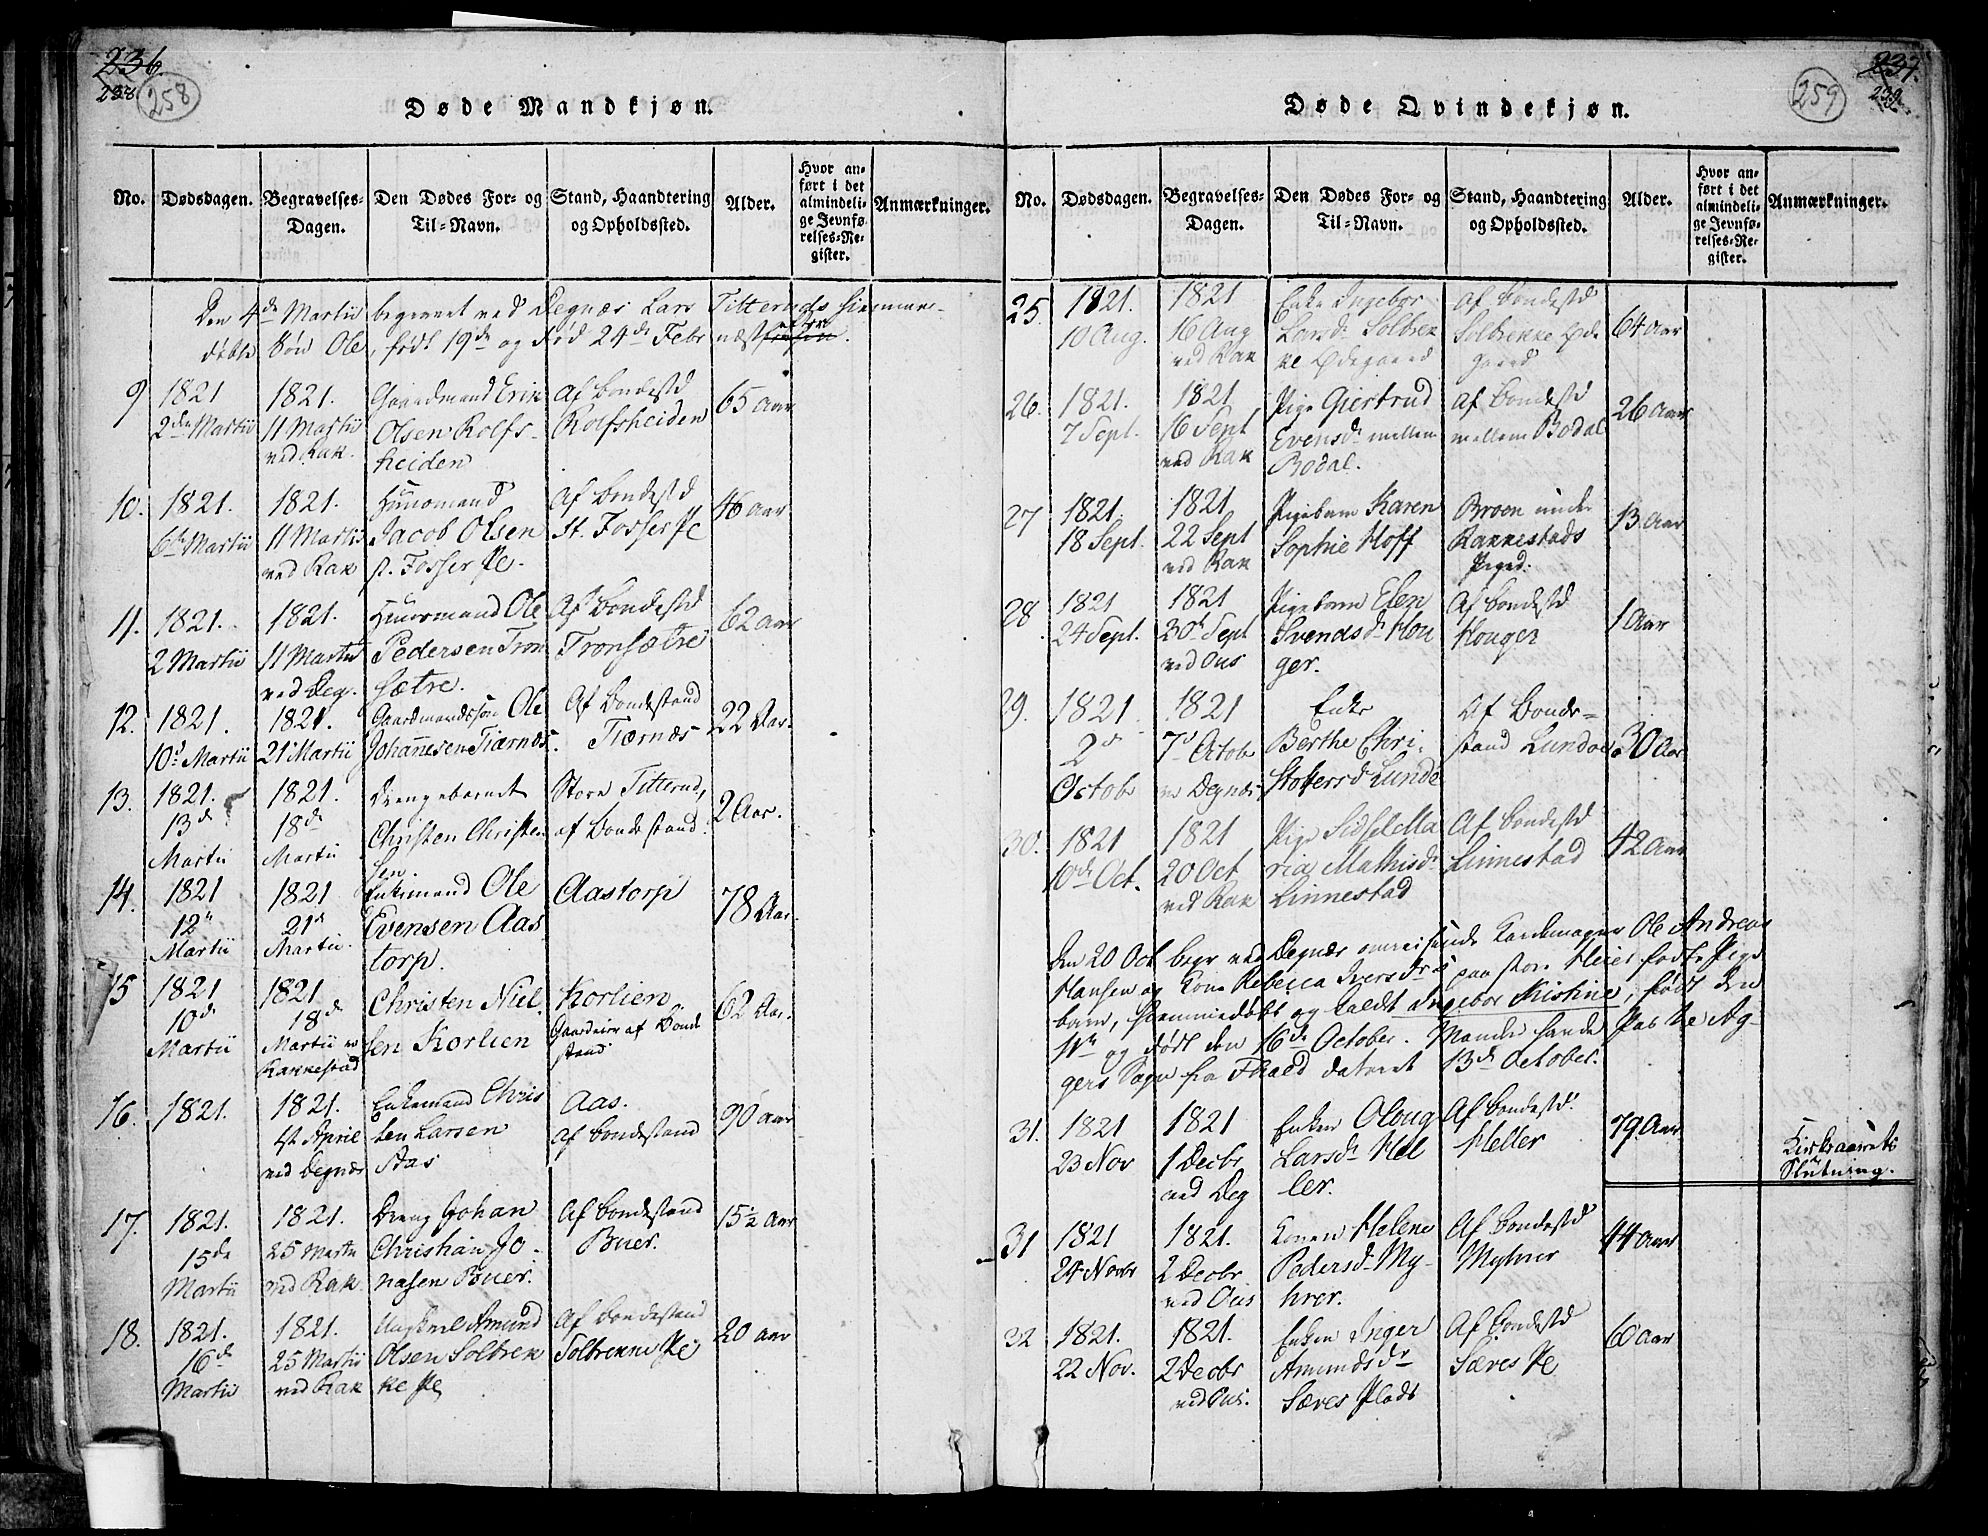 236.
238
258
Døde Mandkjøn.
No. Dødsdagen. Begravelses-Dagen. Den Dødes For- og Til-Navn. Stand, Haandtering og Opholdssted. Alder. Hvor anført i det almindelige Jevnførelses-Register. Anmærkninger.
Den 4de Martii begravet ved Degnæs Lars Titteruds hiemme-
døbte Søn Ole, født 19de og død 24de Febr næst
9 1821 2de Martii 1821. 11 Martii ved Rak. Gaardmand Erik Olsen Rolfs-heiden Af Bondestd Rolfsheiden 65 Aar
10. 1821. 6te Martii 1821. 11 Martii ved Rak Huusmand Jacob Olsen st. Fosser Pe. Af Bondestd St. Fosser Pe 46 Aar
11. 1821. 2 Martii 1821. 11 Martii ved Deg. Huusmand Ole Pedersen Tron sætre. Af Bondestd Tronsætre 62 Aar
12. 1821. 10d Martii 1821. 21 Martii Gaardmandssøn Ole Johannesen Tiærnæs. Af Bondestand Tiærnæs 22 Aar.
13. 1821. 13de Martii 1821. 18de Martii Drengebarnet Christen Christen sen. Store Titterud, af Bondestand. 2 Aar.
14. 1821 12te Martii 1821 21de Martii. Enkemand Ole Evensen Aas torp. Aastorp 78 Aar.
15 1821 10de Martii 1821 18de Martii v. Rakkestad Christen Niel sen Korlien Korlien Gaardeier af Bonde stand 62 Aar.
16. 1821. 1821. 1st April ved Degnæs Enkemand Chris ten Larsen Aas Aas. af Bondestand 90 Aar
17. 1821. 15de Martii 1821. 25 Martii ved Rak Dreng Johan Christian Jo-nasen Buer. Af Bondestand Buer. 15½ Aar
18. 1821. 16de Martii 1821. 25 Martii ved Rak Ungkarl Amund Olsen Solbrek ke Pe Af Bondestand Solbrekke Pe 20 Aar
237.
239
259
Døde Qvindekjøn.
No. Dødsdagen. Begravelses-Dagen. Den Dødes For- og Til-Navn. Stand, Haandtering og Opholdssted. Alder. Hvor anført i det almindelige Jevnførelses-Register. Anmærkninger.
25. 1821. 10 Aug. 1821 16 Aug ved Rak Enke Ingebor Larsdr Solbrek ke Ødegaard Af Bondestd Solbrekke Øde gaard 64 Aar
26. 1821. 7 Sept. 1821 16 Sept ved Rak Pige Giertrud Evensdr mellem Bodal. af Bondestd mellem Bodal 26 Aar
27 1821. 18 Sept. 1821 22 Sept ved Rak Pigebarn Karen Sophie Hoff Broen under Rakkestads Prgd. 13 Aar
28 1821 24 Sept. 1821 30te Sept ved Øus Pigebarn Elen Svendsdr Hou ger. Af Bondestd Houger 1 Aar
29. 1821 2d Octobr 1821 7d Octobr v Degnæs Enke Berthe Chri-stophersdr Lunde Af Bonde-stand Lunde 30 Aar
30. 1821 10de Oct. 1821 20 Oct ved Rak Pige Sidsel Ma ria Mathisdr Linnestad Af Bondestd Linnestad 42 Aar
Den 20 Oct begr ved Degnæs omreisende Kardemager Ole Andreas
Hansen og Kone Rebecca Iversdrs paa store Heier fødte Pige
barn, hiemmedøbt og kaldt Ingebor Kristine, født den
11te og død den 16de October. Manden havde Pas fra Ag-
gers Sogn fra Foged dateret 13de October.
31. 1821 23 Nov 1821 1 Decbr ved Deg Enken Oloug Larsdr Hel ler. Af Bondestd. Heller 79 Aar
Kirkeaarets Slutning.
31 1821 24 Novbr 1821. 2 Decbr ved Øus Konen Helene Pedersdr My-hrer. Af Bondestd Myhrer 44 Aar
32 1821. 22 Nov. 1821. 2 Decbr ved Øus. Enken Inger Amundsdr Sæves Plads Af Bondestd Sæves Pe 60 Aar